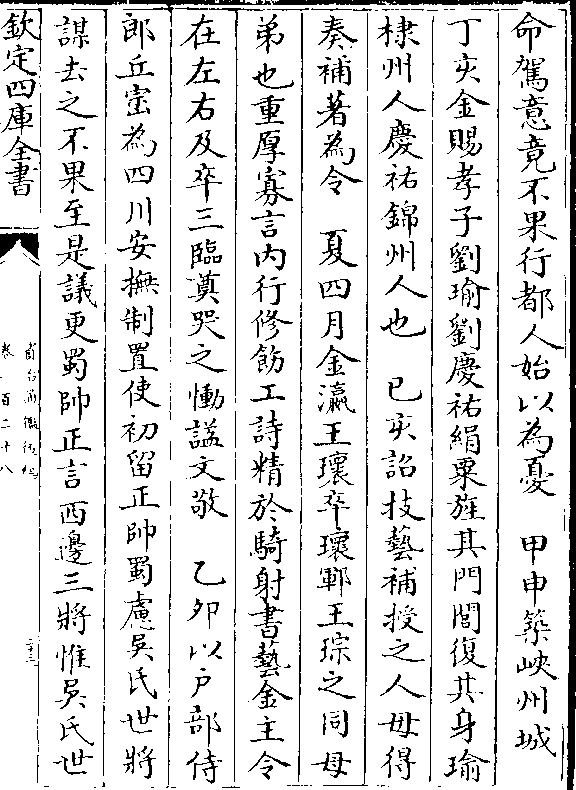 命駕意竟不果行都人始以為憂　甲申築峽州城
丁亥金賜孝子劉瑜劉慶祐絹粟旌其門閭復其身瑜
棣州人慶祐錦州人也　已亥詔技藝補授之人毋得
奏補著為令　夏四月金瀛王瓌卒瓌鄆王琮之同母
弟也重厚寡言内行修飭工詩精於騎射書藝金主令
在左右及卒三臨奠哭之慟諡文敬　乙卯以户部侍
郎丘崈為四川安撫制置使初留正帥蜀慮吳氏世將
謀去之不果至是議更蜀帥正言西邊三將惟吳氏世
欽定四庫全書